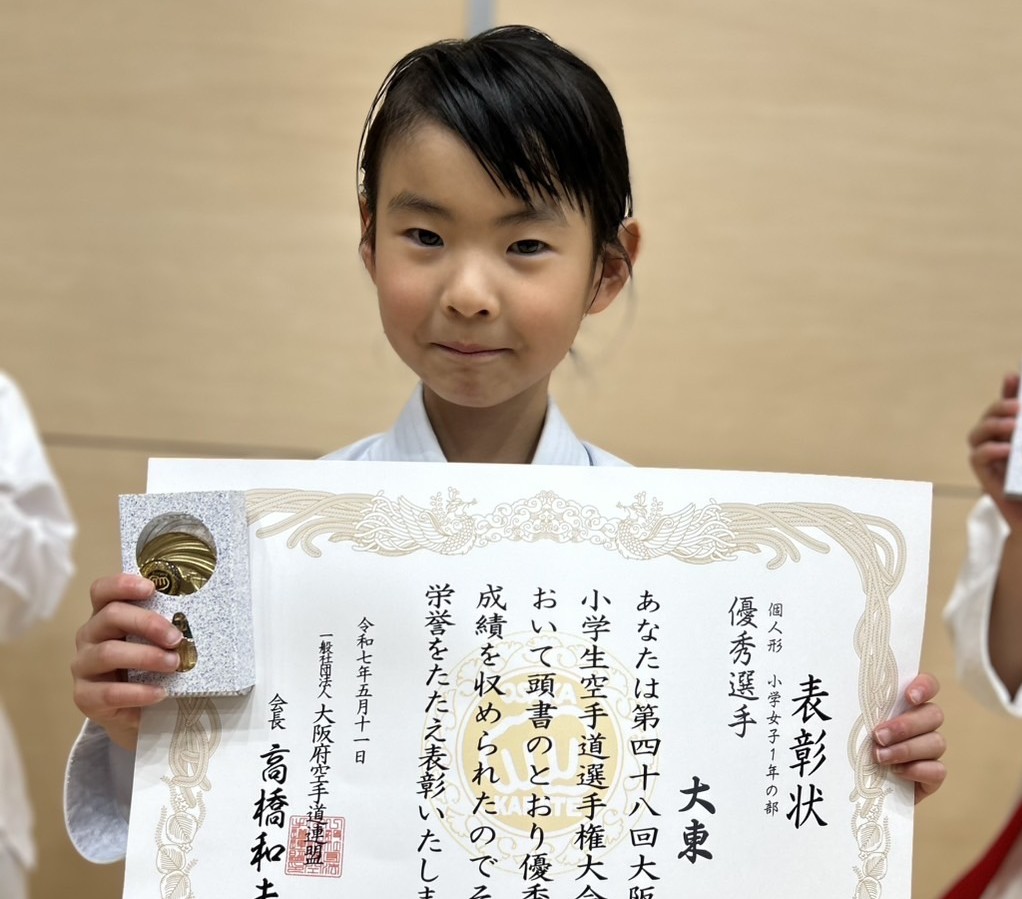 表彰状
個人形 小学女子1年の部
優秀選手
大東
あなたは第四十八回大阪
小学生空手道選手権大会
おいて頭書のとおり優秀
成績を収められたのでそ
栄誉をたたえ表彰いたしま
令和七年五月十一日
一般社団法人 大阪府空手道連盟
会長 高橋和
OSAKA
KARATE